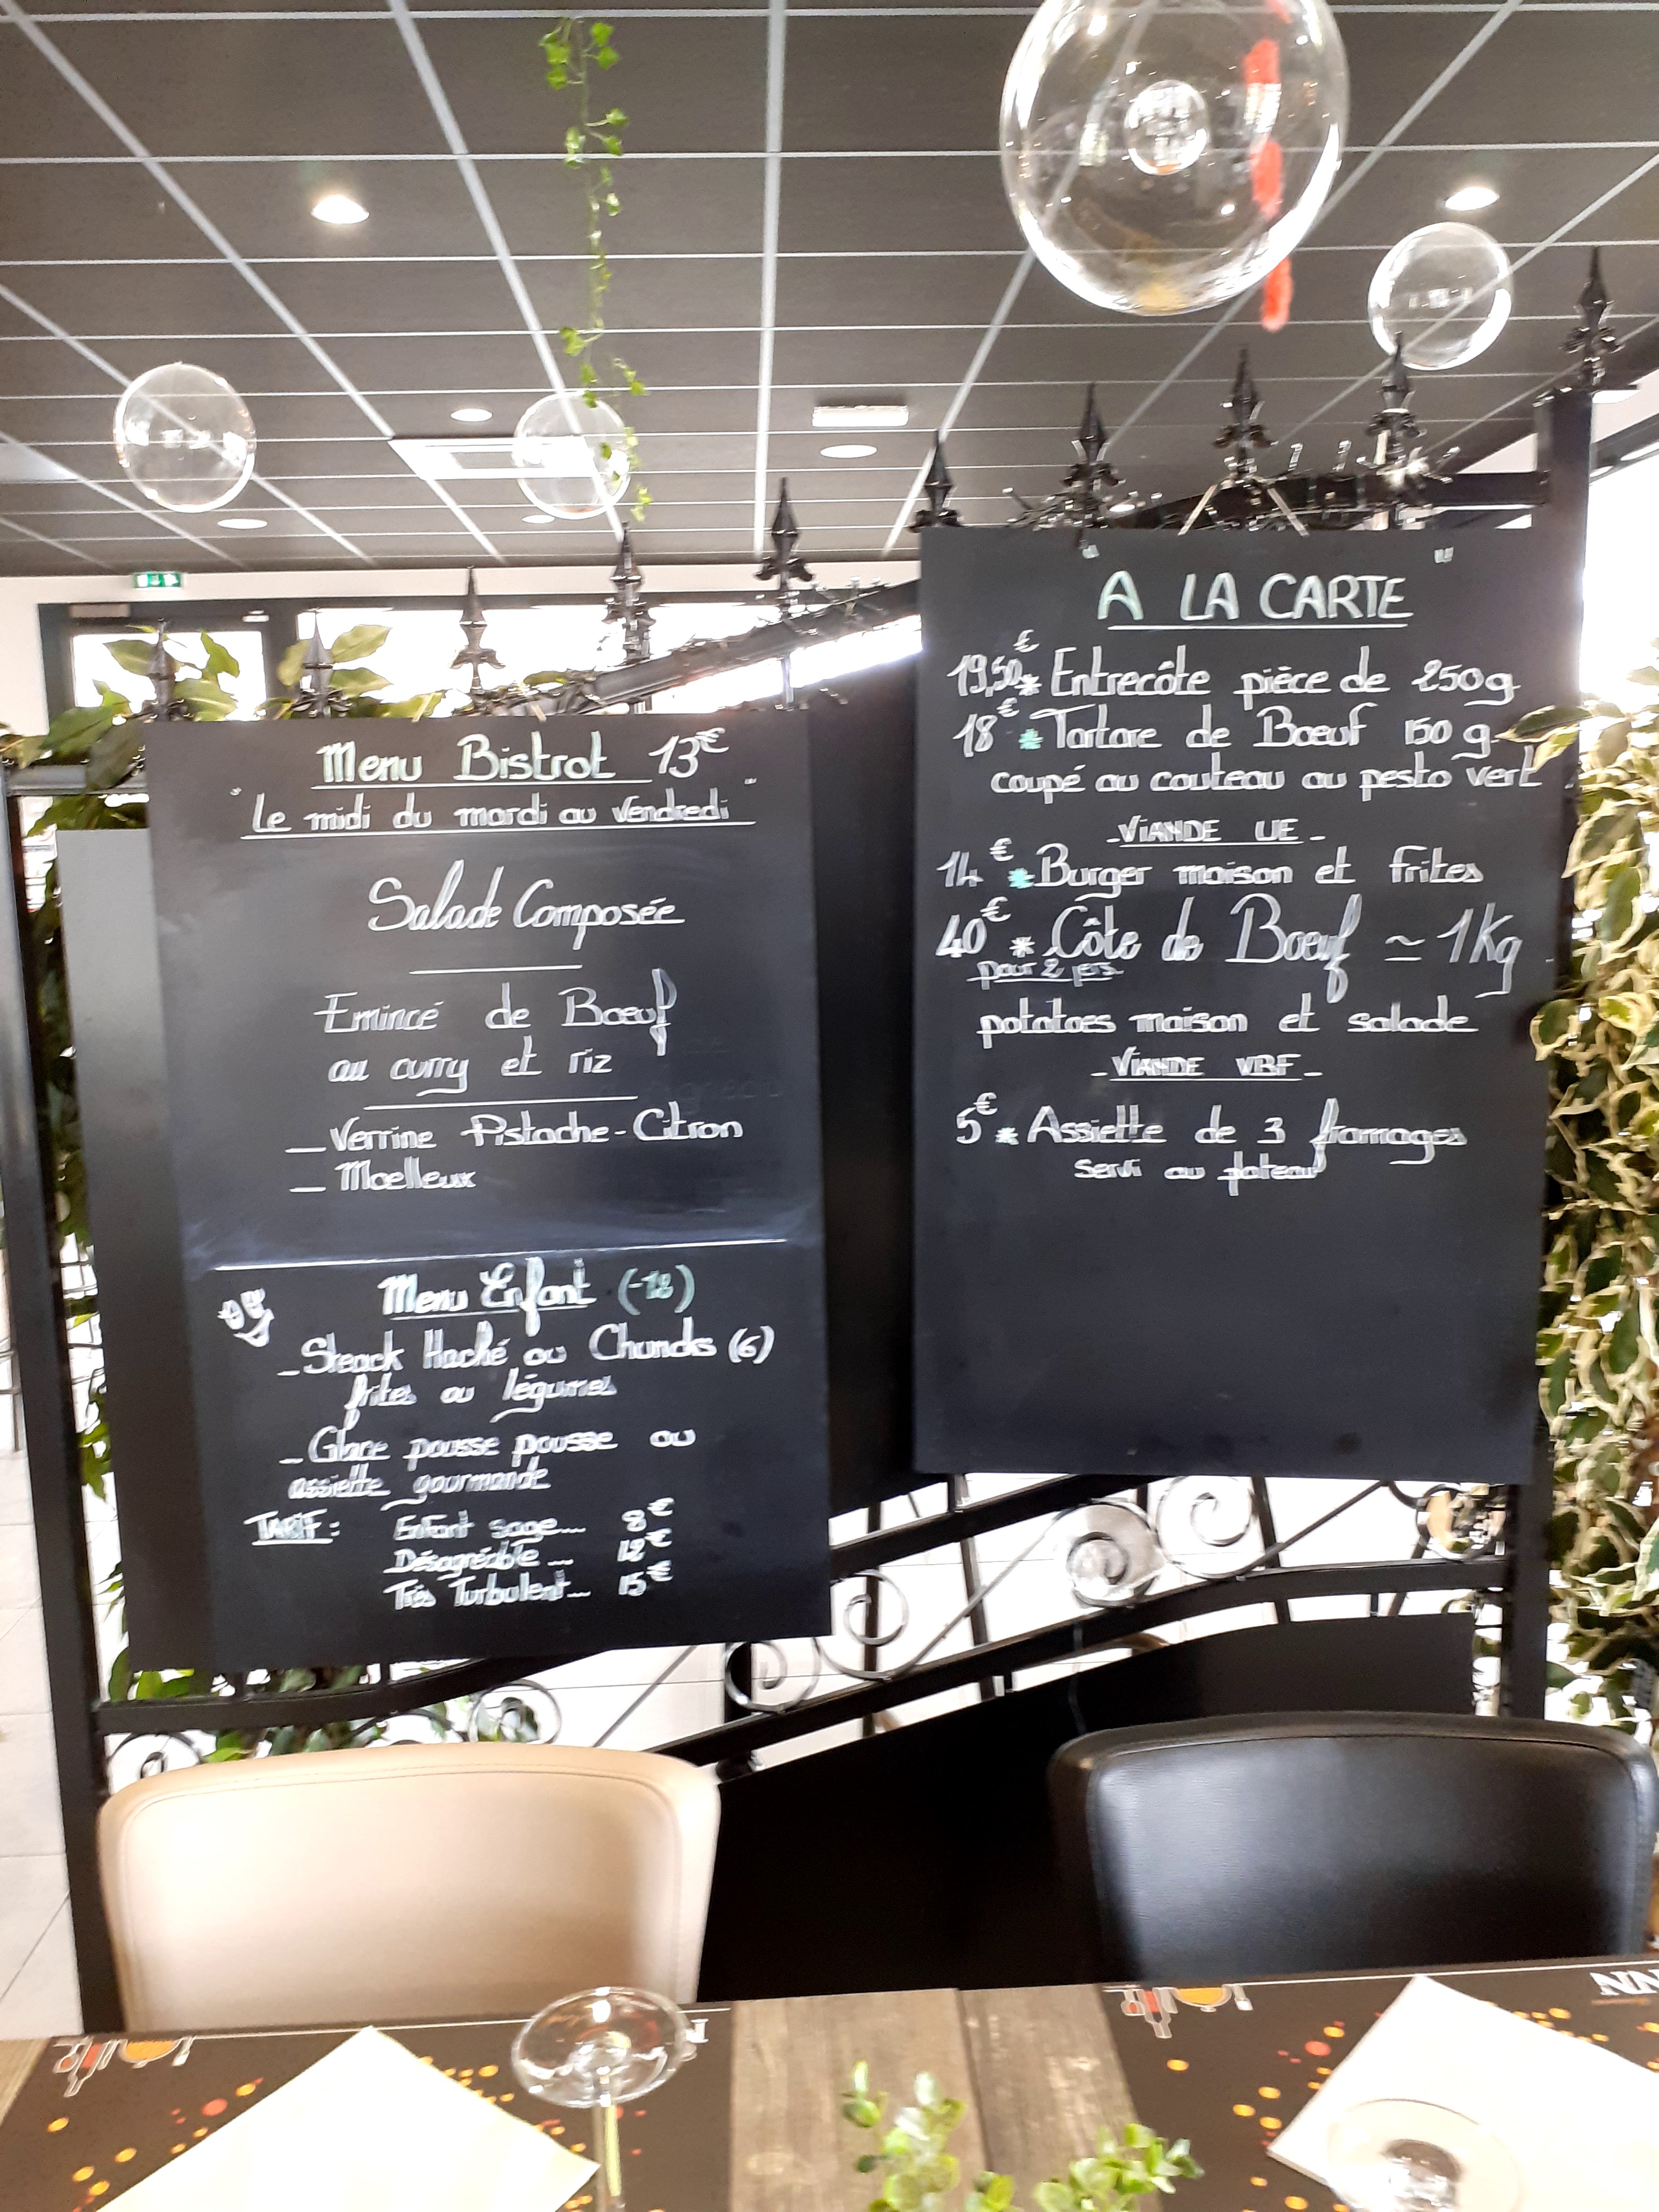 Menu Bistrot 13€
"Le midi du mardi au Vendredi"
Salade Composée
Emincé de Bœuf
au curry et riz
_ Verrine Pistache-Citron
_ Moelleux
Menu Enfant (-12)
_ Steack Haché ou Chuncks (6)
frites ou légumes
_ Glace pousse pousse ou
assiette gourmande
TARIF: Enfant sage... 8€
Désagréable... 12€
Très Turbulent... 15€
"A LA CARTE"
19,50€ * Entrecôte pièce de 250g
18€ * Tartare de Bœuf 150g
coupé au couteau au pesto vert
- VIANDE UE -
14€ * Burger maison et frites
40€ * Côte de Bœuf ≃ 1Kg
pour 2 pers
potatoes maison et salade
- VIANDE VBF -
5€ * Assiette de 3 fromages
servi au plateau